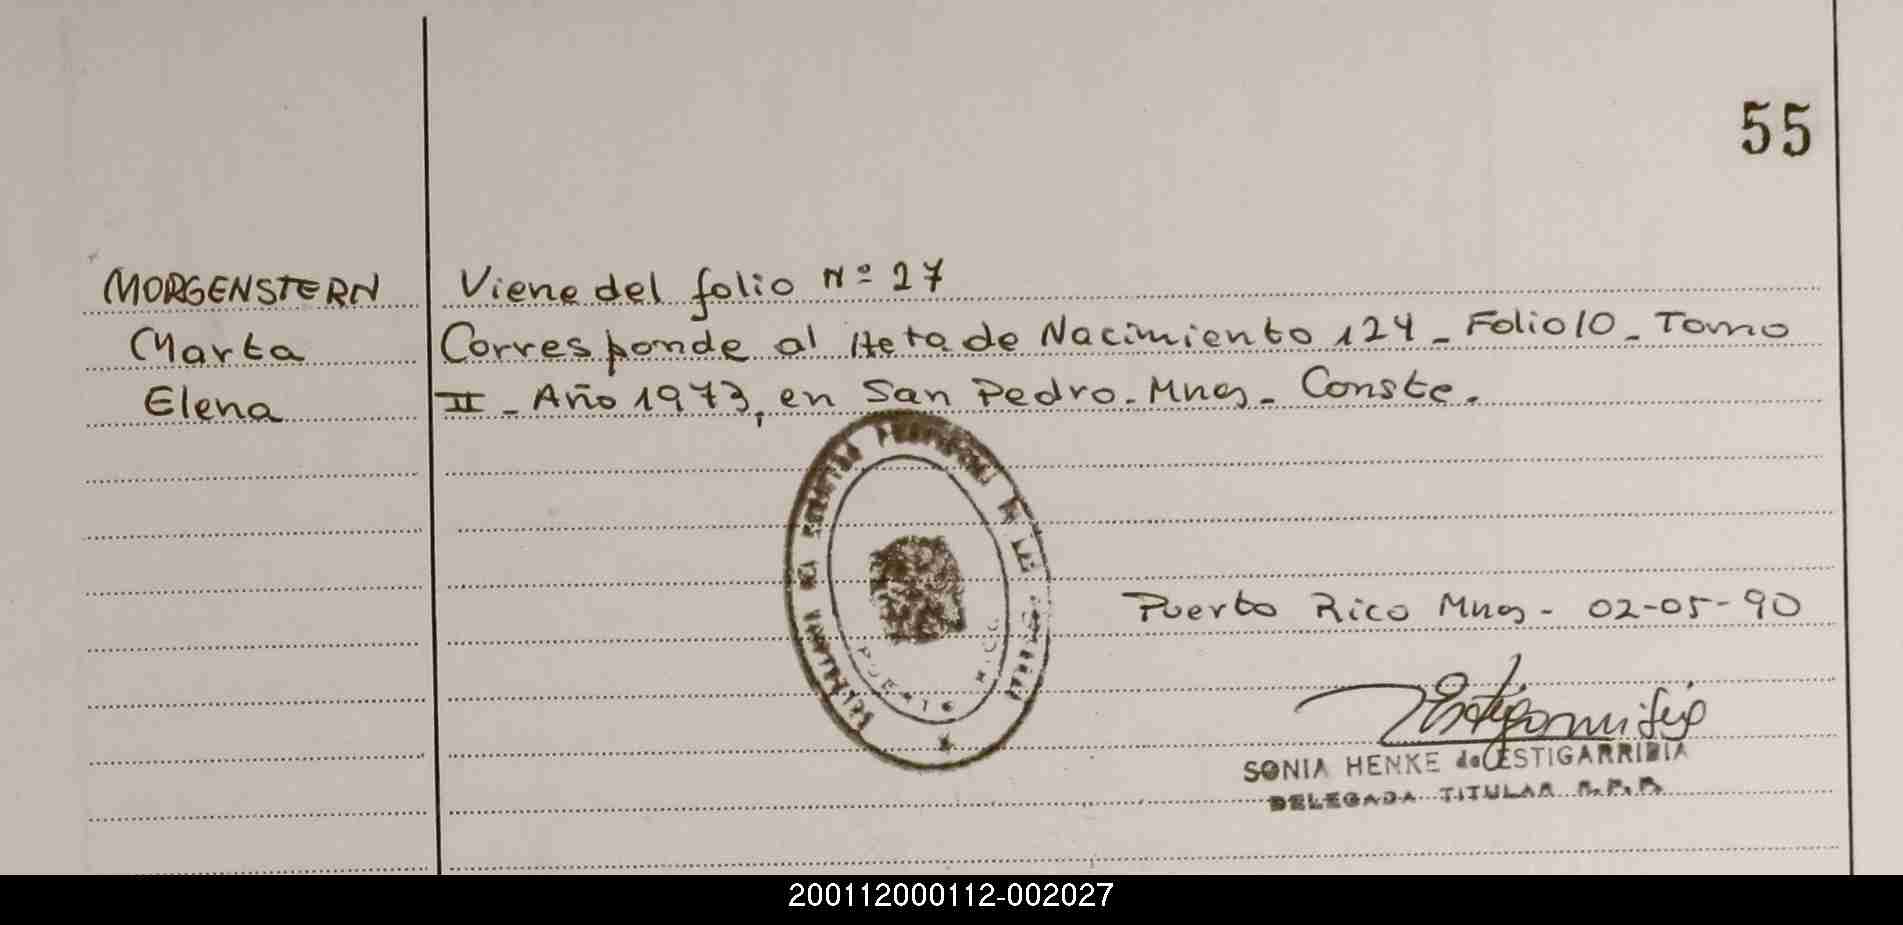 55
MORGENSTERN Viene del folio Nº 27
Marta Corresponde al Acta de Nacimiento 124 - Folio 10 - Tomo
Elena II - Año 1973, en San Pedro - Mnes - Conste.
PUERTO RICO
Puerto Rico Mnes - 02-05-90
SONIA HENKE de ESTIGARRIBIA
DELEGADA TITULAR R.P.P.
200112000112-002027